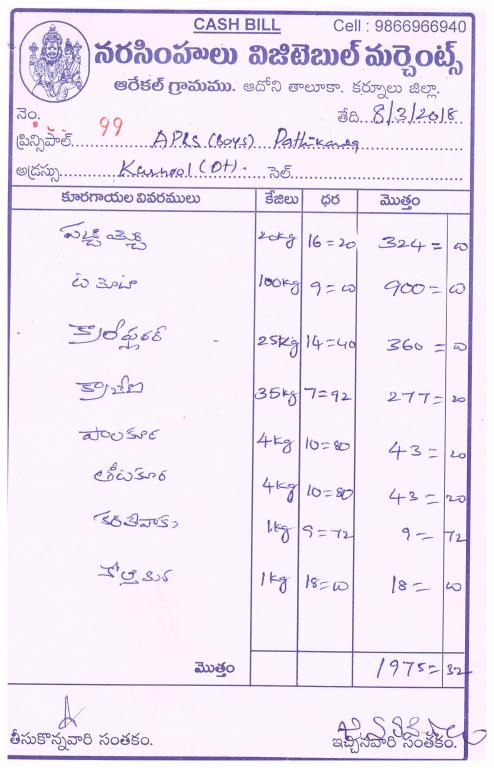 CASH BILL Cell : 9866966940
నరసింహులు విజిటెబుల్ మర్చెంట్స్
ఆరేకల్ గ్రామము. ఆదోని తాలూకా. కర్నూలు జిల్లా.
నెం. తేది. 8/3/2018
ప్రిన్సిపాల్. 99 APRS (Boys)
అడ్రస్సు Kurnool (Dt). సెల్.
కూరగాయల వివరములు కేజీలు ధర మొత్తం
పచ్చిమిర్చి 20kg 16=20 324=00
టమోటా 100kg 9=00 900=00
25kg 14=40 360=00
35kg 7=92 277=20
పాలకూర 4kg 10=80 43=20
తోటకూర 4kg 10=80 43=20
కరివేపాకు 1kg 9=72 9=72
కొత్తిమీర 1kg 18=00 18=00
మొత్తం 1975=32
తీసుకొన్నవారి సంతకం. ఇచ్చినవారి సంతకం.